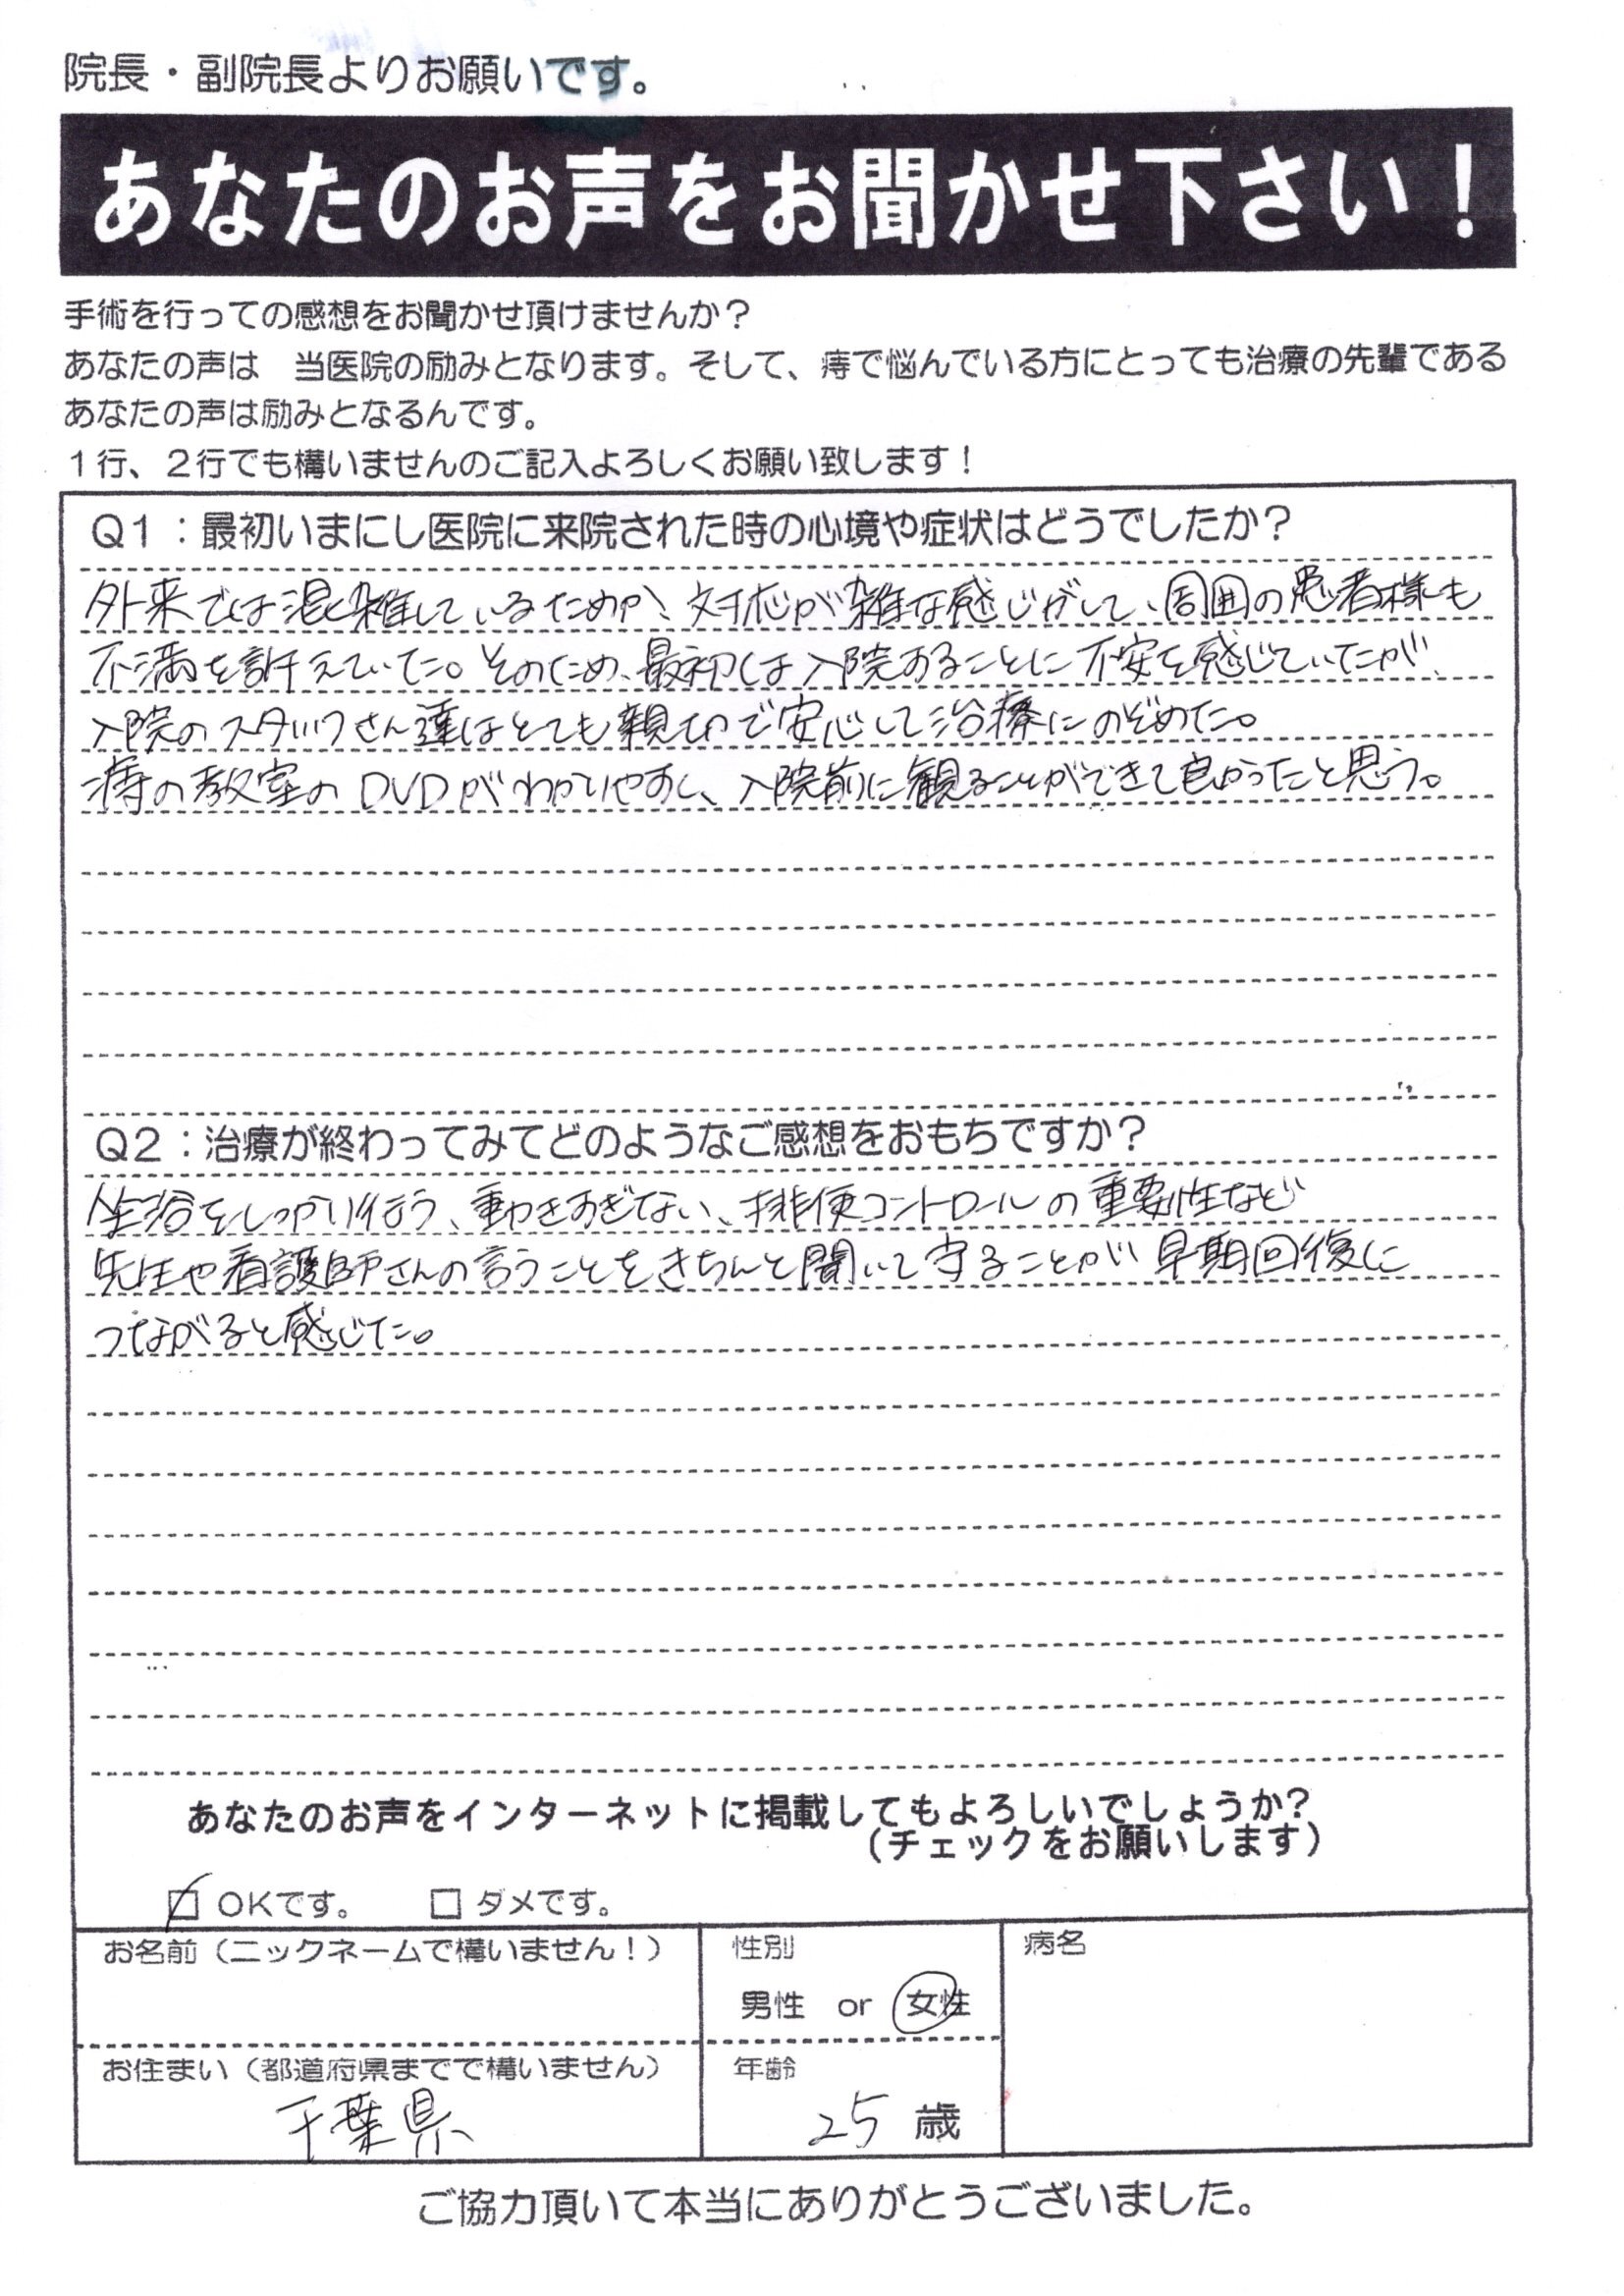 院長・副院長よりお願いです。
あなたのお声をお聞かせ下さい！
手術を行っての感想をお聞かせ頂けませんか？
あなたの声は　当医院の励みとなります。そして、痔で悩んでいる方にとっても治療の先輩である
あなたの声は励みとなるんです。
１行、２行でも構いませんのご記入よろしくお願い致します！
Ｑ１：最初いまにし医院に来院された時の心境や症状はどうでしたか？
外来では混雑しているためか、対応が雑な感じがして、周囲の患者様も
不満を訴えていた。そのため、最初は入院することに不安を感じていたが、
入院のスタッフさん達はとても親切で安心して治療にのぞめた。
痔の教室のDVDがわかりやすく、入院前に観ることができて良かったと思う。
Ｑ２：治療が終わってみてどのようなご感想をおもちですか？
坐浴をしっかり行う、動きすぎない、排便コントロールの重要性など
先生や看護師さんの言うことをきちんと聞いて守ることが早期回復に
つながると感じた。
あなたのお声をインターネットに掲載してもよろしいでしょうか？
（チェックをお願いします）
☑ ＯＫです。　□ ダメです。
お名前（ニックネームで構いません！）
性別
病名
男性　or　女性
お住まい（都道府県までで構いません）
年齢
千葉県
25 歳
ご協力頂いて本当にありがとうございました。